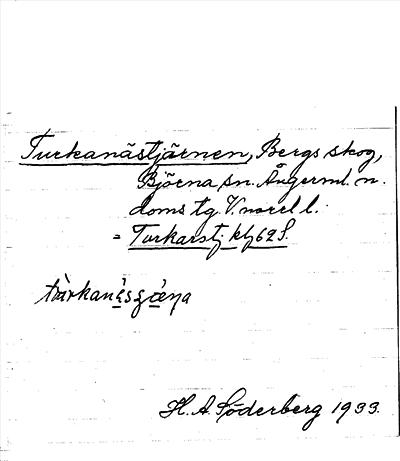 Turkanästjärnen, Bergs skog,
Björna sn. Ångerml. n.
doms tg. V.norrl l.
= Turkarstj. kbl 62 S.
H. A. Söderberg 1933.